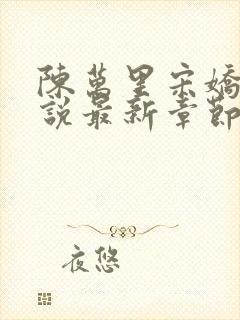 陳萬里宋嬌
說最新章節
夜悠